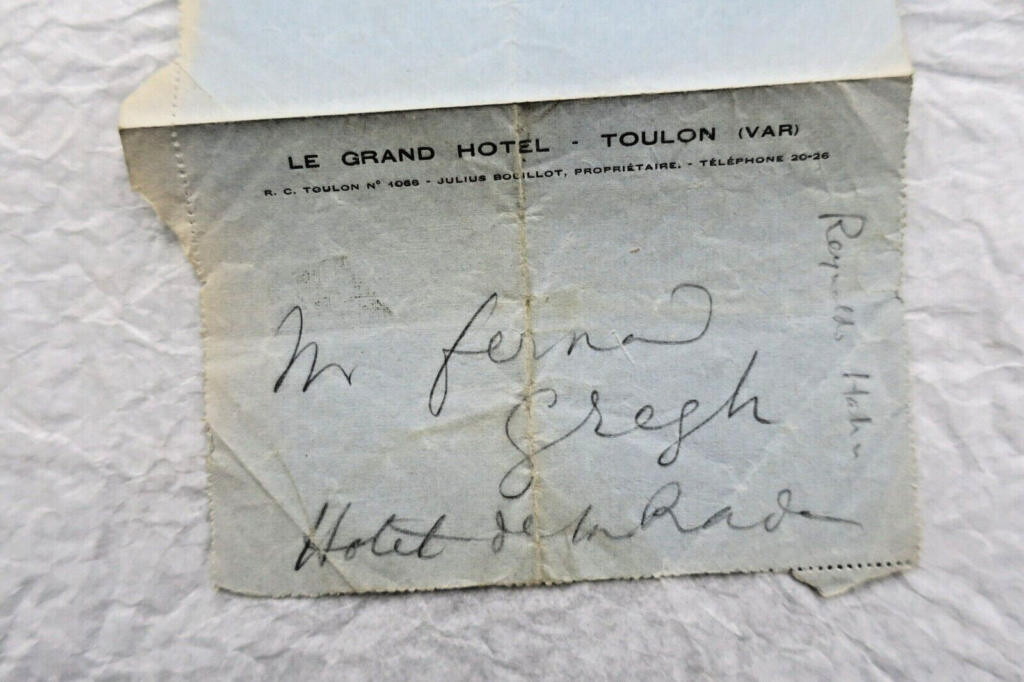 LE GRAND HOTEL - TOULON (VAR)
R. C. TOULON N° 1066 - JULIUS BOUILLOT, PROPRIÉTAIRE. - TÉLÉPHONE 20-26
Mr fernand
Gregh
Hotel de la Rade
Reynaldo Hahn